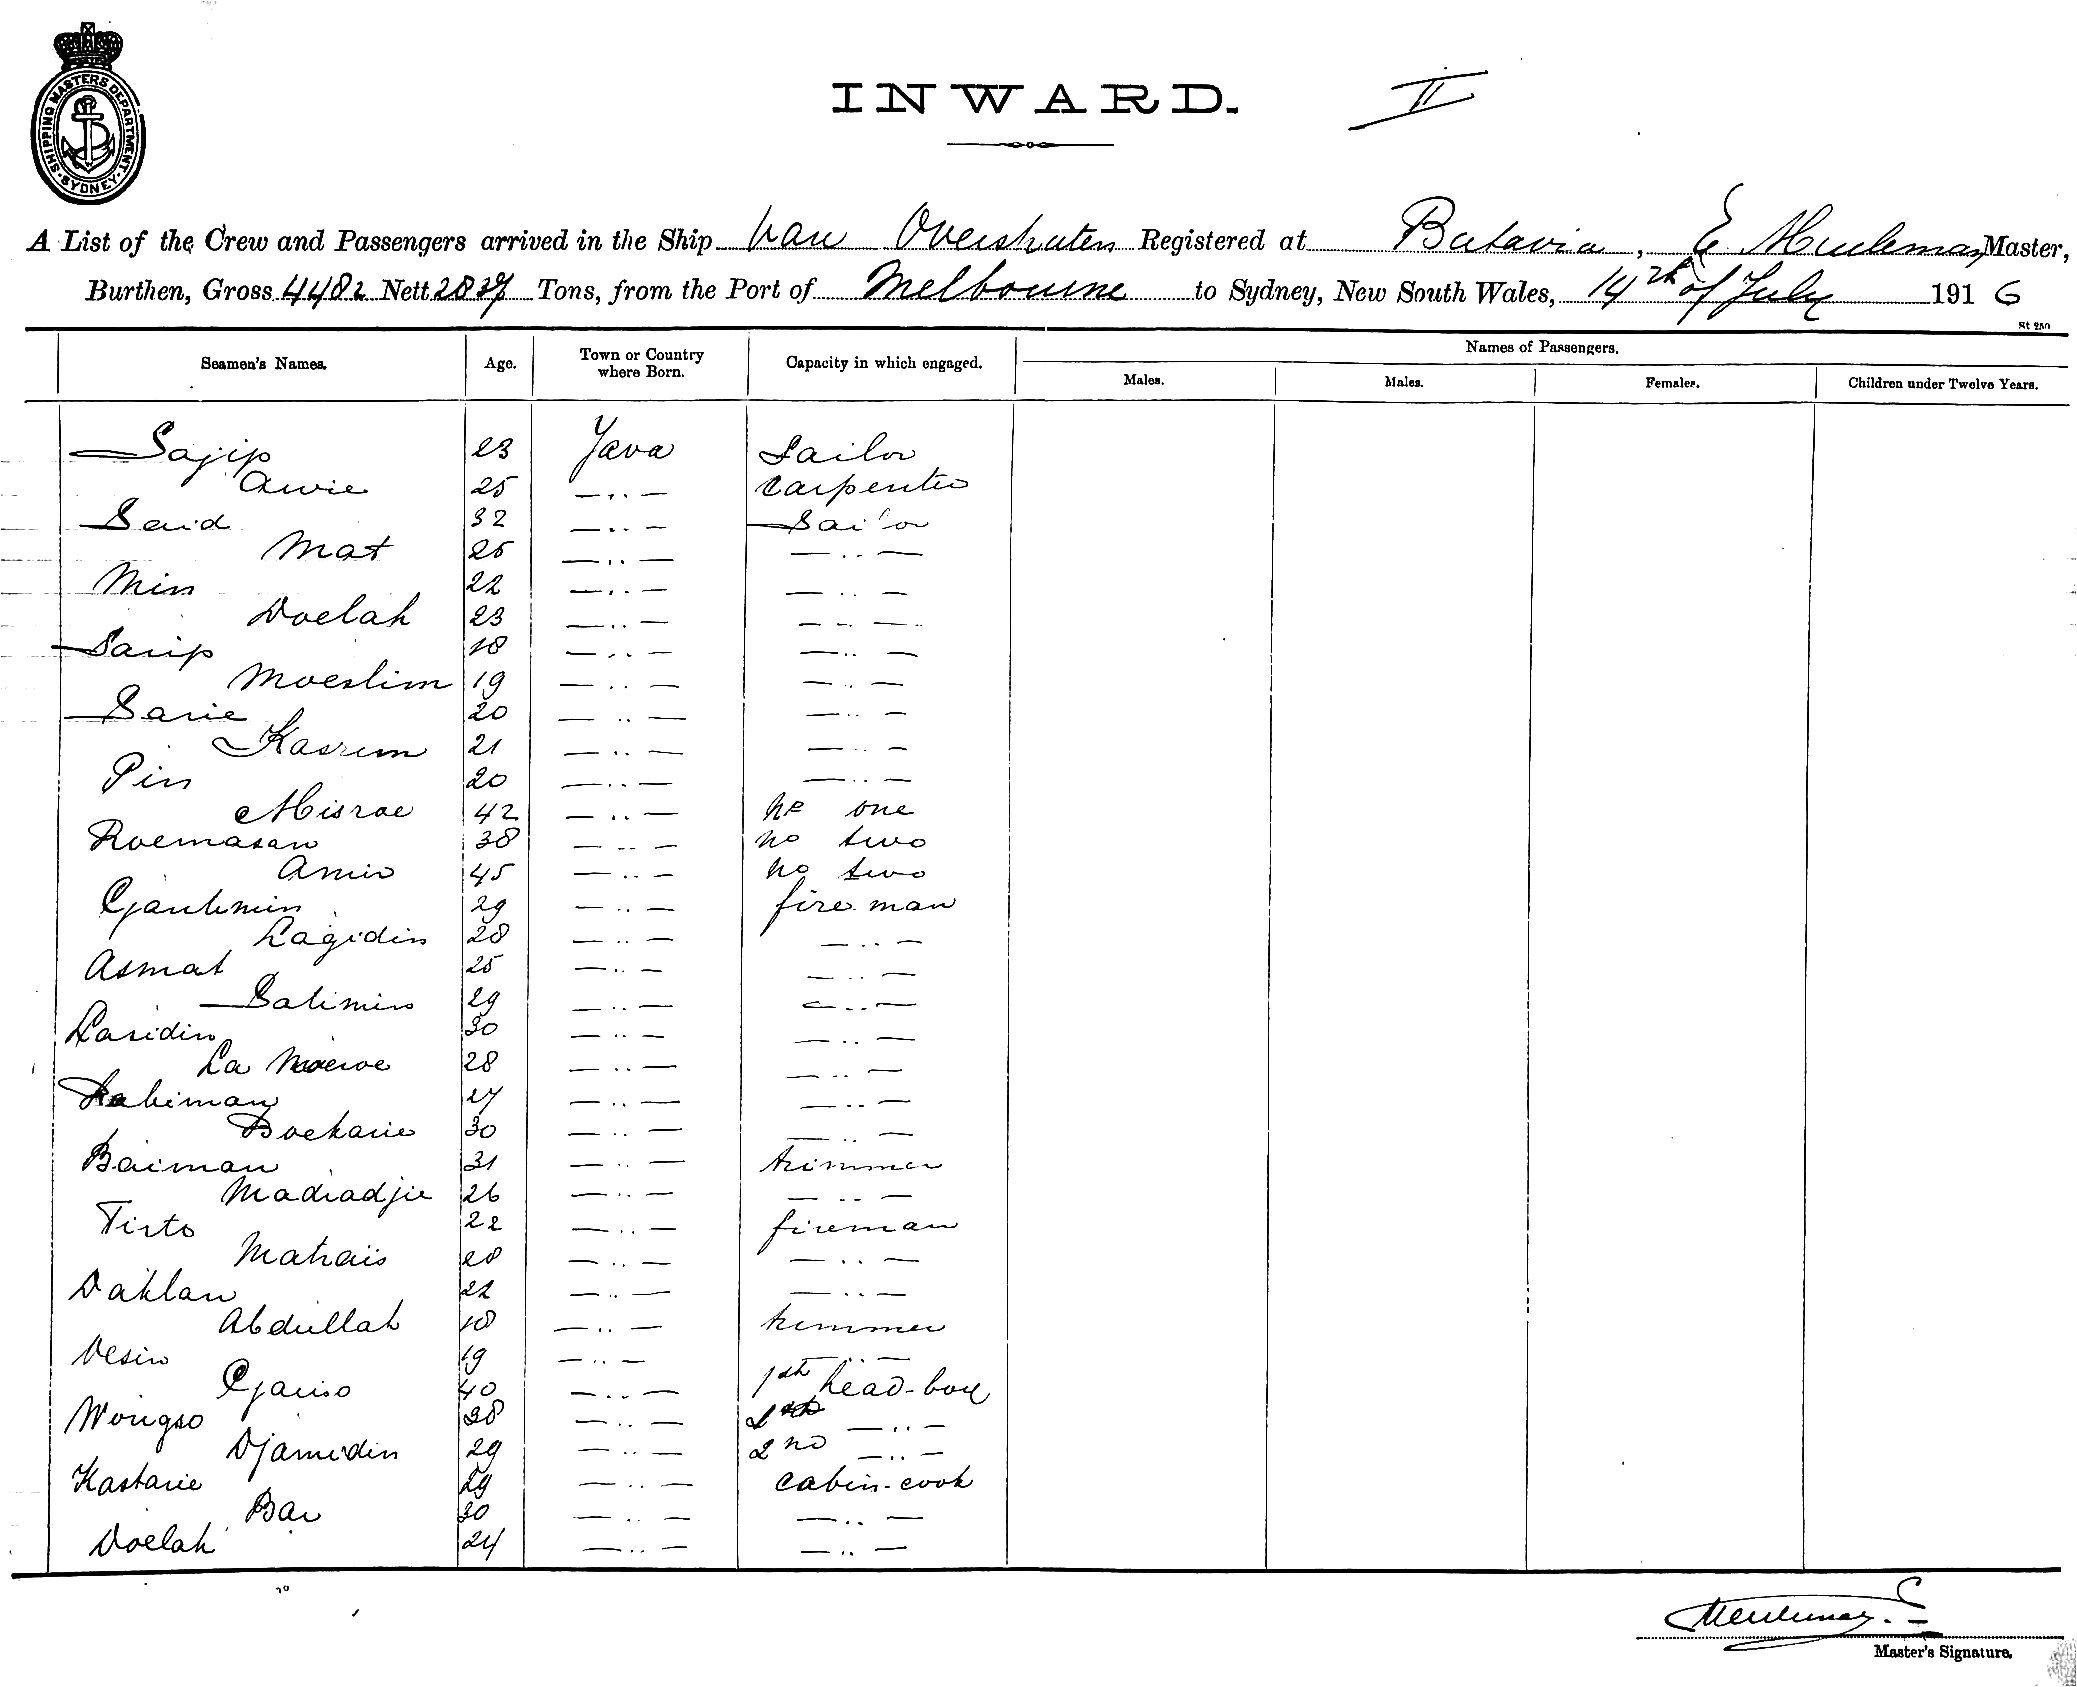 SHIPPING MASTERS DEPARTMENT · SYDNEY ·
INWARD. II
A List of the Crew and Passengers arrived in the Ship van Overstraten Registered at Batavia, E Meuleman Master,
Burthen, Gross 4482 Nett Tons, from the Port of Melbourne to Sydney, New South Wales, 14th of July 1916
St 250
Seamen's Names. Age. Town or Country where Born. Capacity in which engaged. Names of Passengers.
Males. Males. Females. Children under Twelve Years.
Sajip 23 Java Sailor
Awie 25 — „ — carpenter
Said 32 — „ — Sailor
Mat 25 — „ — — „ —
Min 22 — „ — — „ —
Doelah 23 — „ — — „ —
Sarip 18 — „ — — „ —
Moeslim 19 — „ — — „ —
Sarie 20 — „ — — „ —
21 — „ — — „ —
Pin 20 — „ — — „ —
Misrae 42 — „ — no one
Roemasan 38 — „ — no two
Amir 45 — „ — no two
29 — „ — fireman
Lagidin 28 — „ — — „ —
Asmat 25 — „ — — „ —
Salimin 29 — „ — — „ —
Lasidin 30 — „ — — „ —
La 28 — „ — — „ —
27 — „ — — „ —
Boekarie 30 — „ — — „ —
Baiman 31 — „ — trimmer
Madradjie 26 — „ — — „ —
Tirto 22 — „ — fireman
Matrais 28 — „ — — „ —
Dahlan 22 — „ — — „ —
Abdullah 18 — „ — trimmer
Desin 19 — „ — — „ —
40 — „ — 1st head-boy
Wongso 38 — „ — — „ —
Djamidin 29 — „ — 2nd — „ —
Kastarie 29 — „ — cabin-cook
Bar 30 — „ — — „ —
Doelah 24 — „ — — „ —
Meuleman E
Master's Signature.